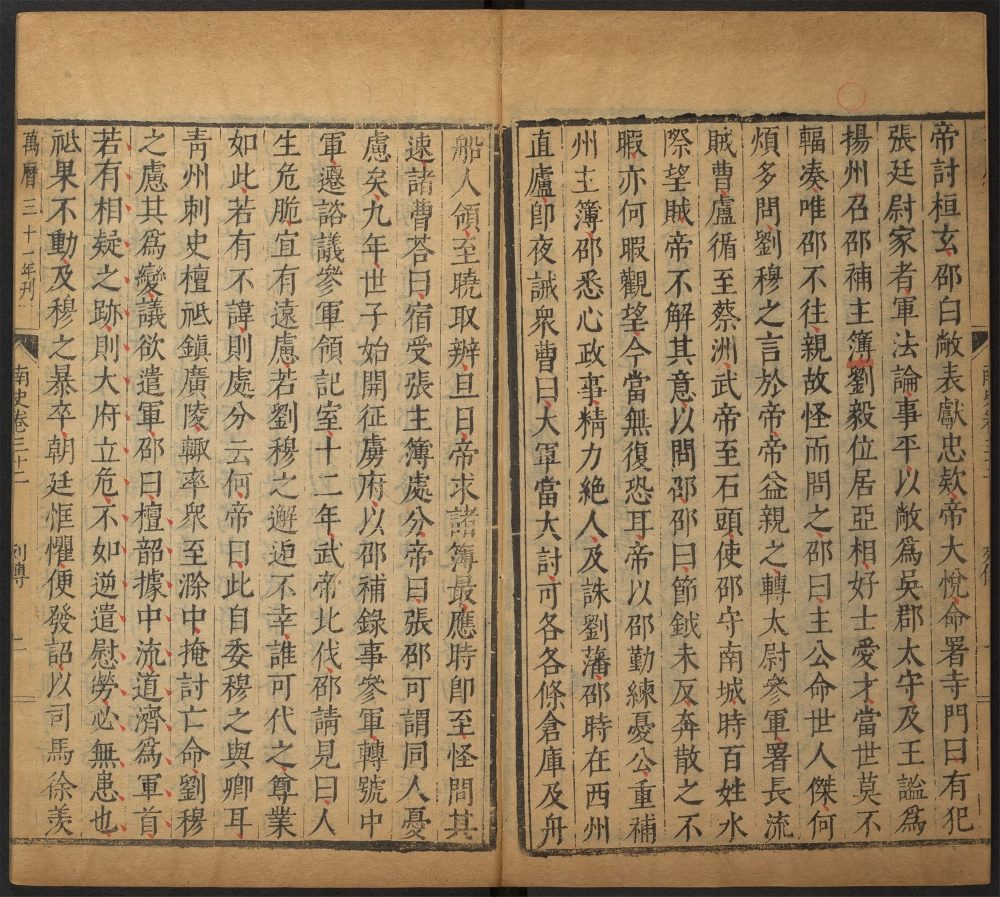 帝討桓玄邵白敞表獻忠欵帝大悅命署寺門曰有犯
張廷尉家者軍法論事平以敞爲吳郡太守及王謐爲
揚州召邵補主簿劉毅位居亞相好士愛才當世莫不
輻湊唯邵不往親故怪而問之邵曰主公命世人傑何
煩多問劉穆之言於帝帝益親之轉太尉參軍署長流
賊曹盧循至蔡洲武帝至石頭使邵守南城時百姓水
際望賊帝不解其意以問邵邵曰節鉞未反奔散之不
暇亦何暇觀望今當無復恐耳帝以邵勤練憂公重補
州主簿邵悉心政事精力絶人及誅劉藩邵時在西州
直廬卽夜誡衆曹曰大軍當大討可各各條倉庫及舟
船人領至曉取辨旦日帝求諸簿最應時卽至怪問其
速諸曹荅曰宿受張主簿處分帝曰張邵可謂同人憂
慮矣九年世子始開征虜府以邵補錄事參軍轉號中
軍遷諮議參軍領記室十二年武帝北伐邵請見曰人
生危脆宜有遠慮若劉穆之邂逅不幸誰可代之尊業
如此若有不諱則處分云何帝曰此自委穆之與卿耳
靑州刺史檀祗鎮廣陵輙率衆至滁中掩討亡命劉穆
之慮其爲變議欲遣軍邵曰檀韶據中流道濟爲軍首
若有相疑之跡則大府立危不如逆遣慰勞必無患也
祗果不動及穆之暴卒朝廷恇懼便發詔以司馬徐羨
萬曆三十一年刊
南史卷三十二
列傳
二